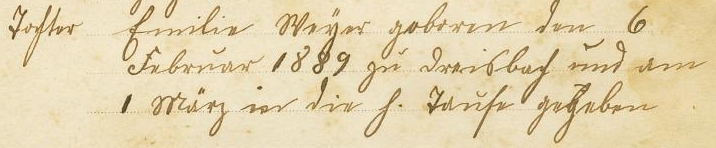 Tochter Emilie Weyer geboren den 6
Februar 1889 zu Dreisbach und am
1 März in die h. Taufe gegeben